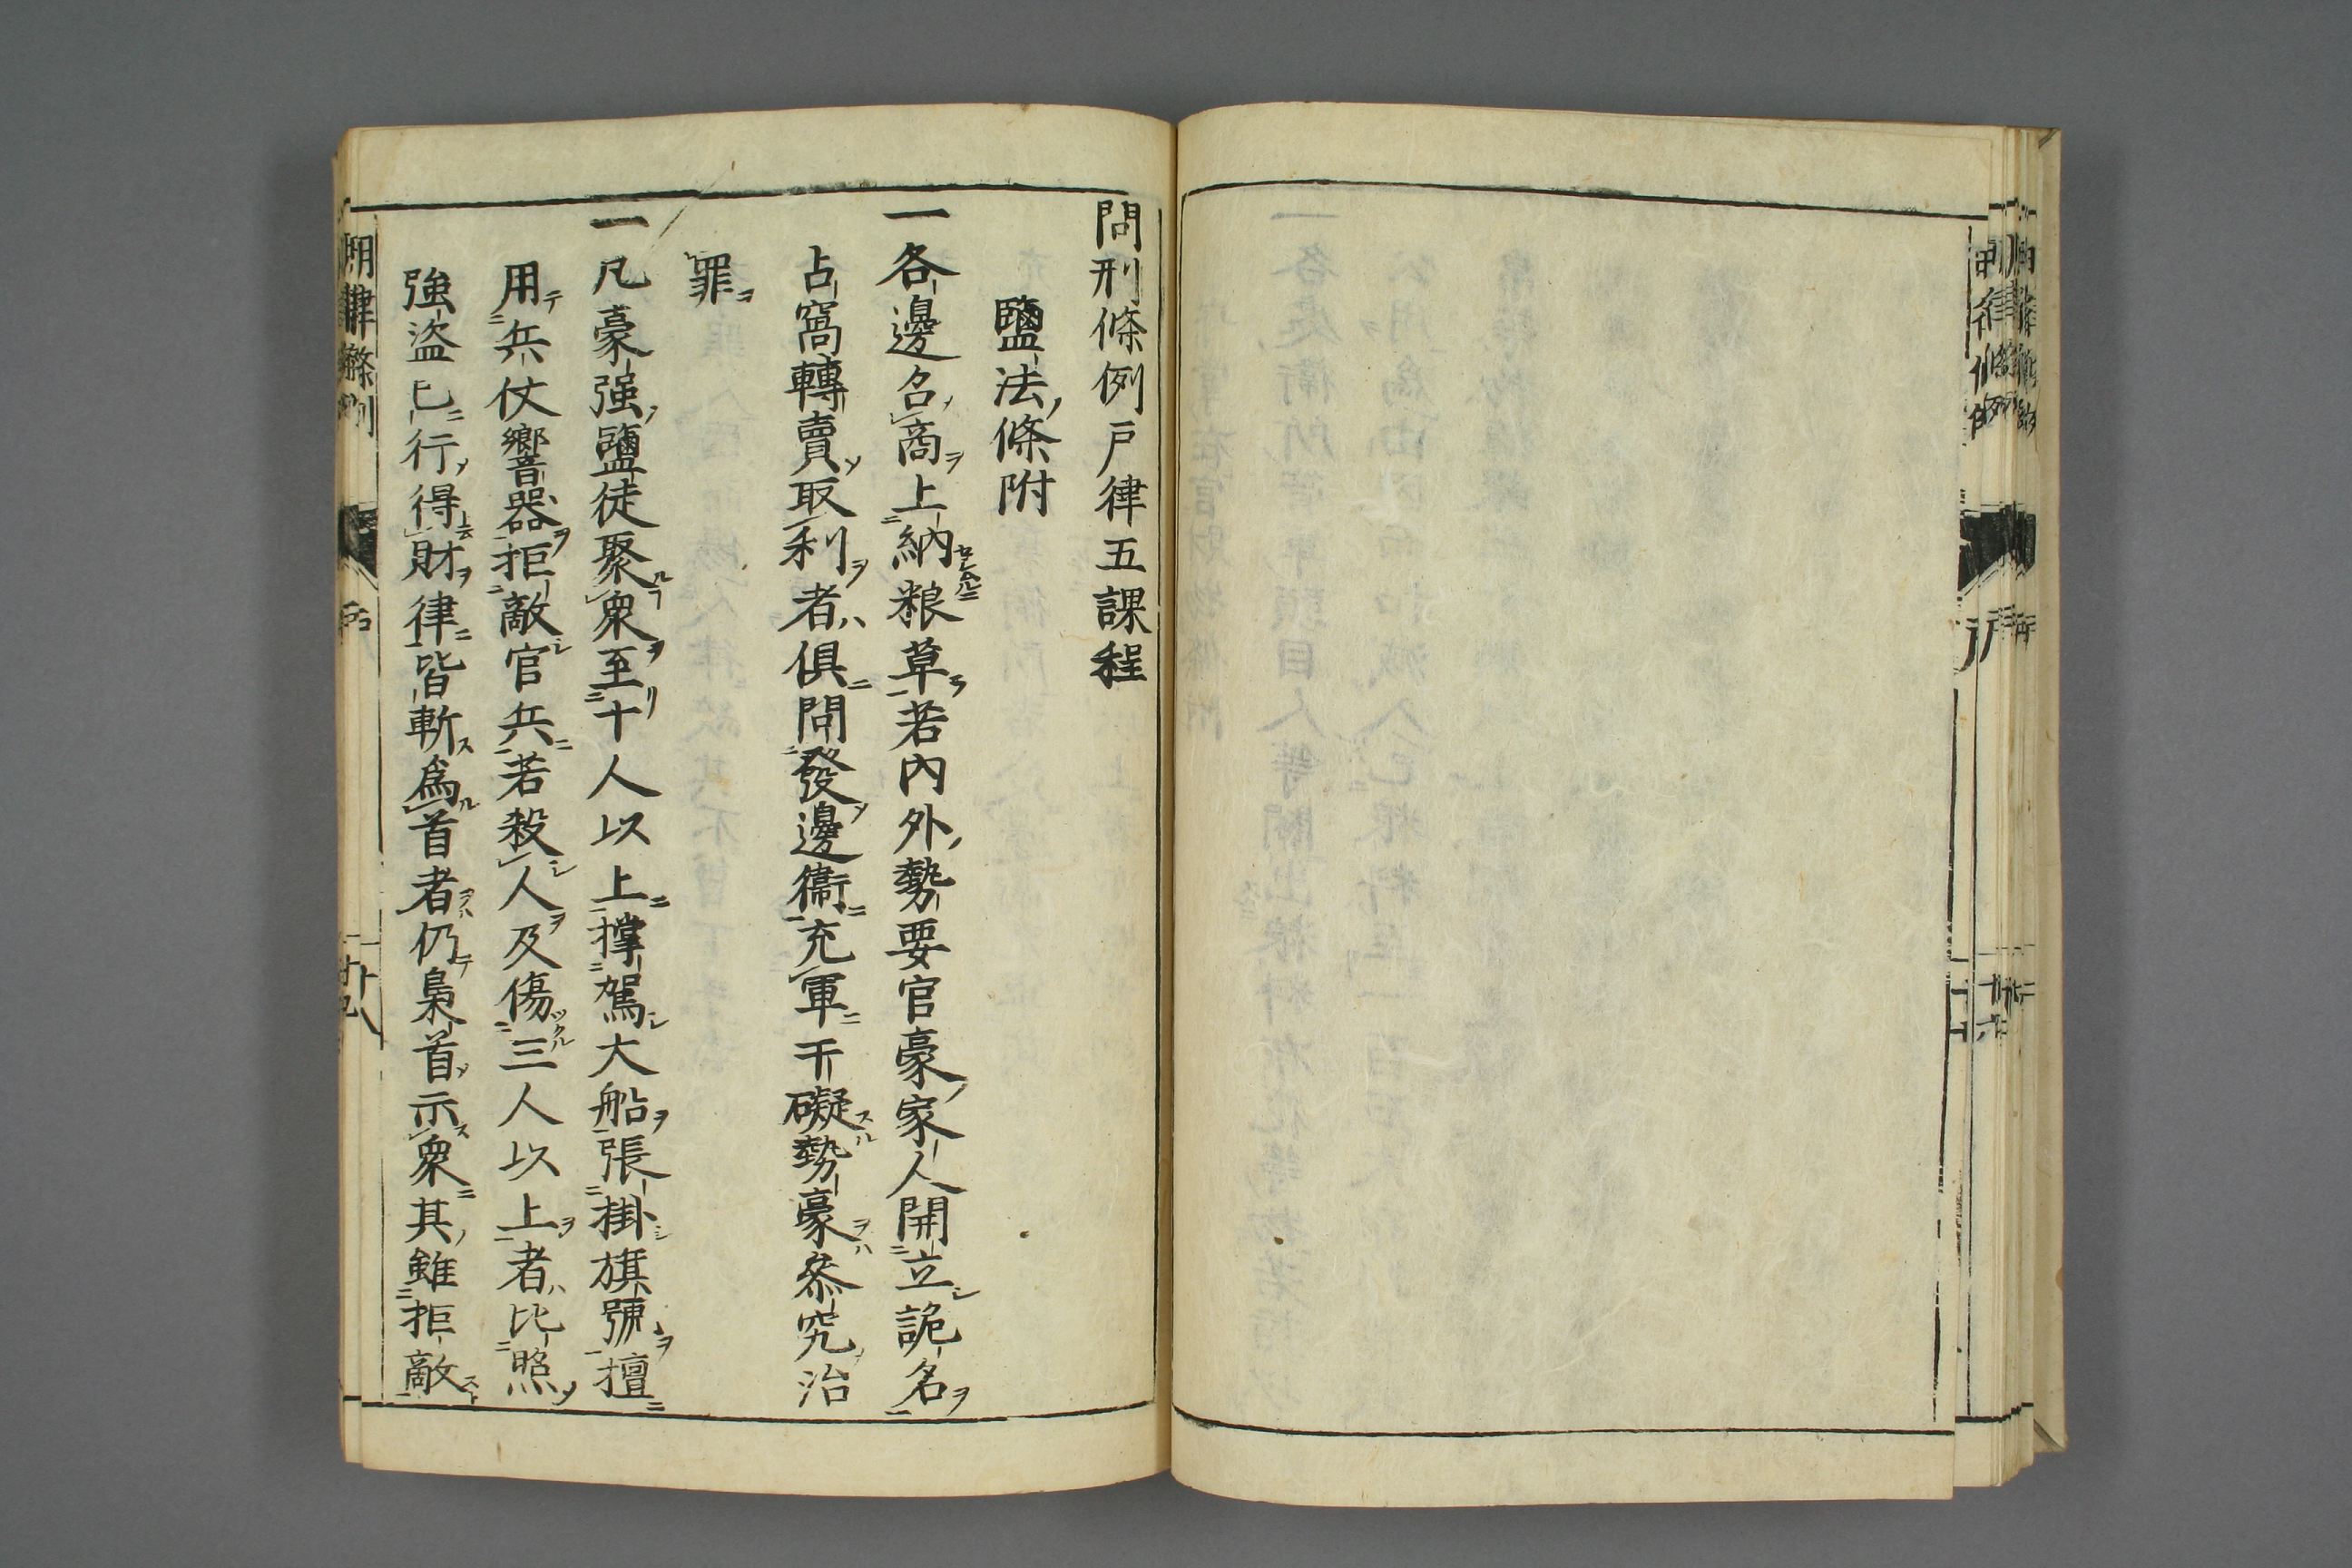 問刑條例戶律五課程
鹽法條附
一各邊召商上納粮草若內外勢要官豪家人開立詭名
占窩轉賣取利者俱問發邊衞充軍干礙勢豪叅究治
罪
一凡豪强鹽徒聚衆至十人以上撑駕大船張掛旗號擅
用兵仗響器拒敵官兵若殺人及傷三人以上者比照
強盗已行得財律皆斬爲首者仍梟首示衆其雖拒敵